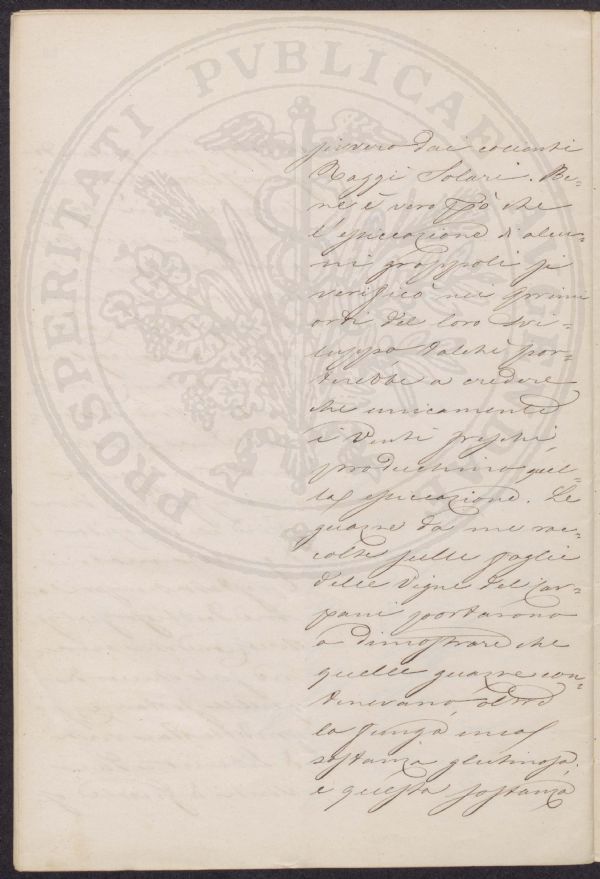 PROSPERITATI PVBLICAE AVGENDAE
pivvero dai cocenti
Raggi Solari. Be-
ne è vero però che
l'essiccazione di alcu-
ni grappoli si
verificò nei primi
orti del loro svi-
luppo dalchè por-
terebbe a credere
che unicamente
i Venti freschi
producessero quel-
la essiccazione. Le
guazze da me rac-
colte sulle foglie
delle Vigne del Car-
pani portarono
a dimostrare che
quelle guazze con-
tenevano, oltre
la funga una
sostanza glutinosa,
e questa sostanza